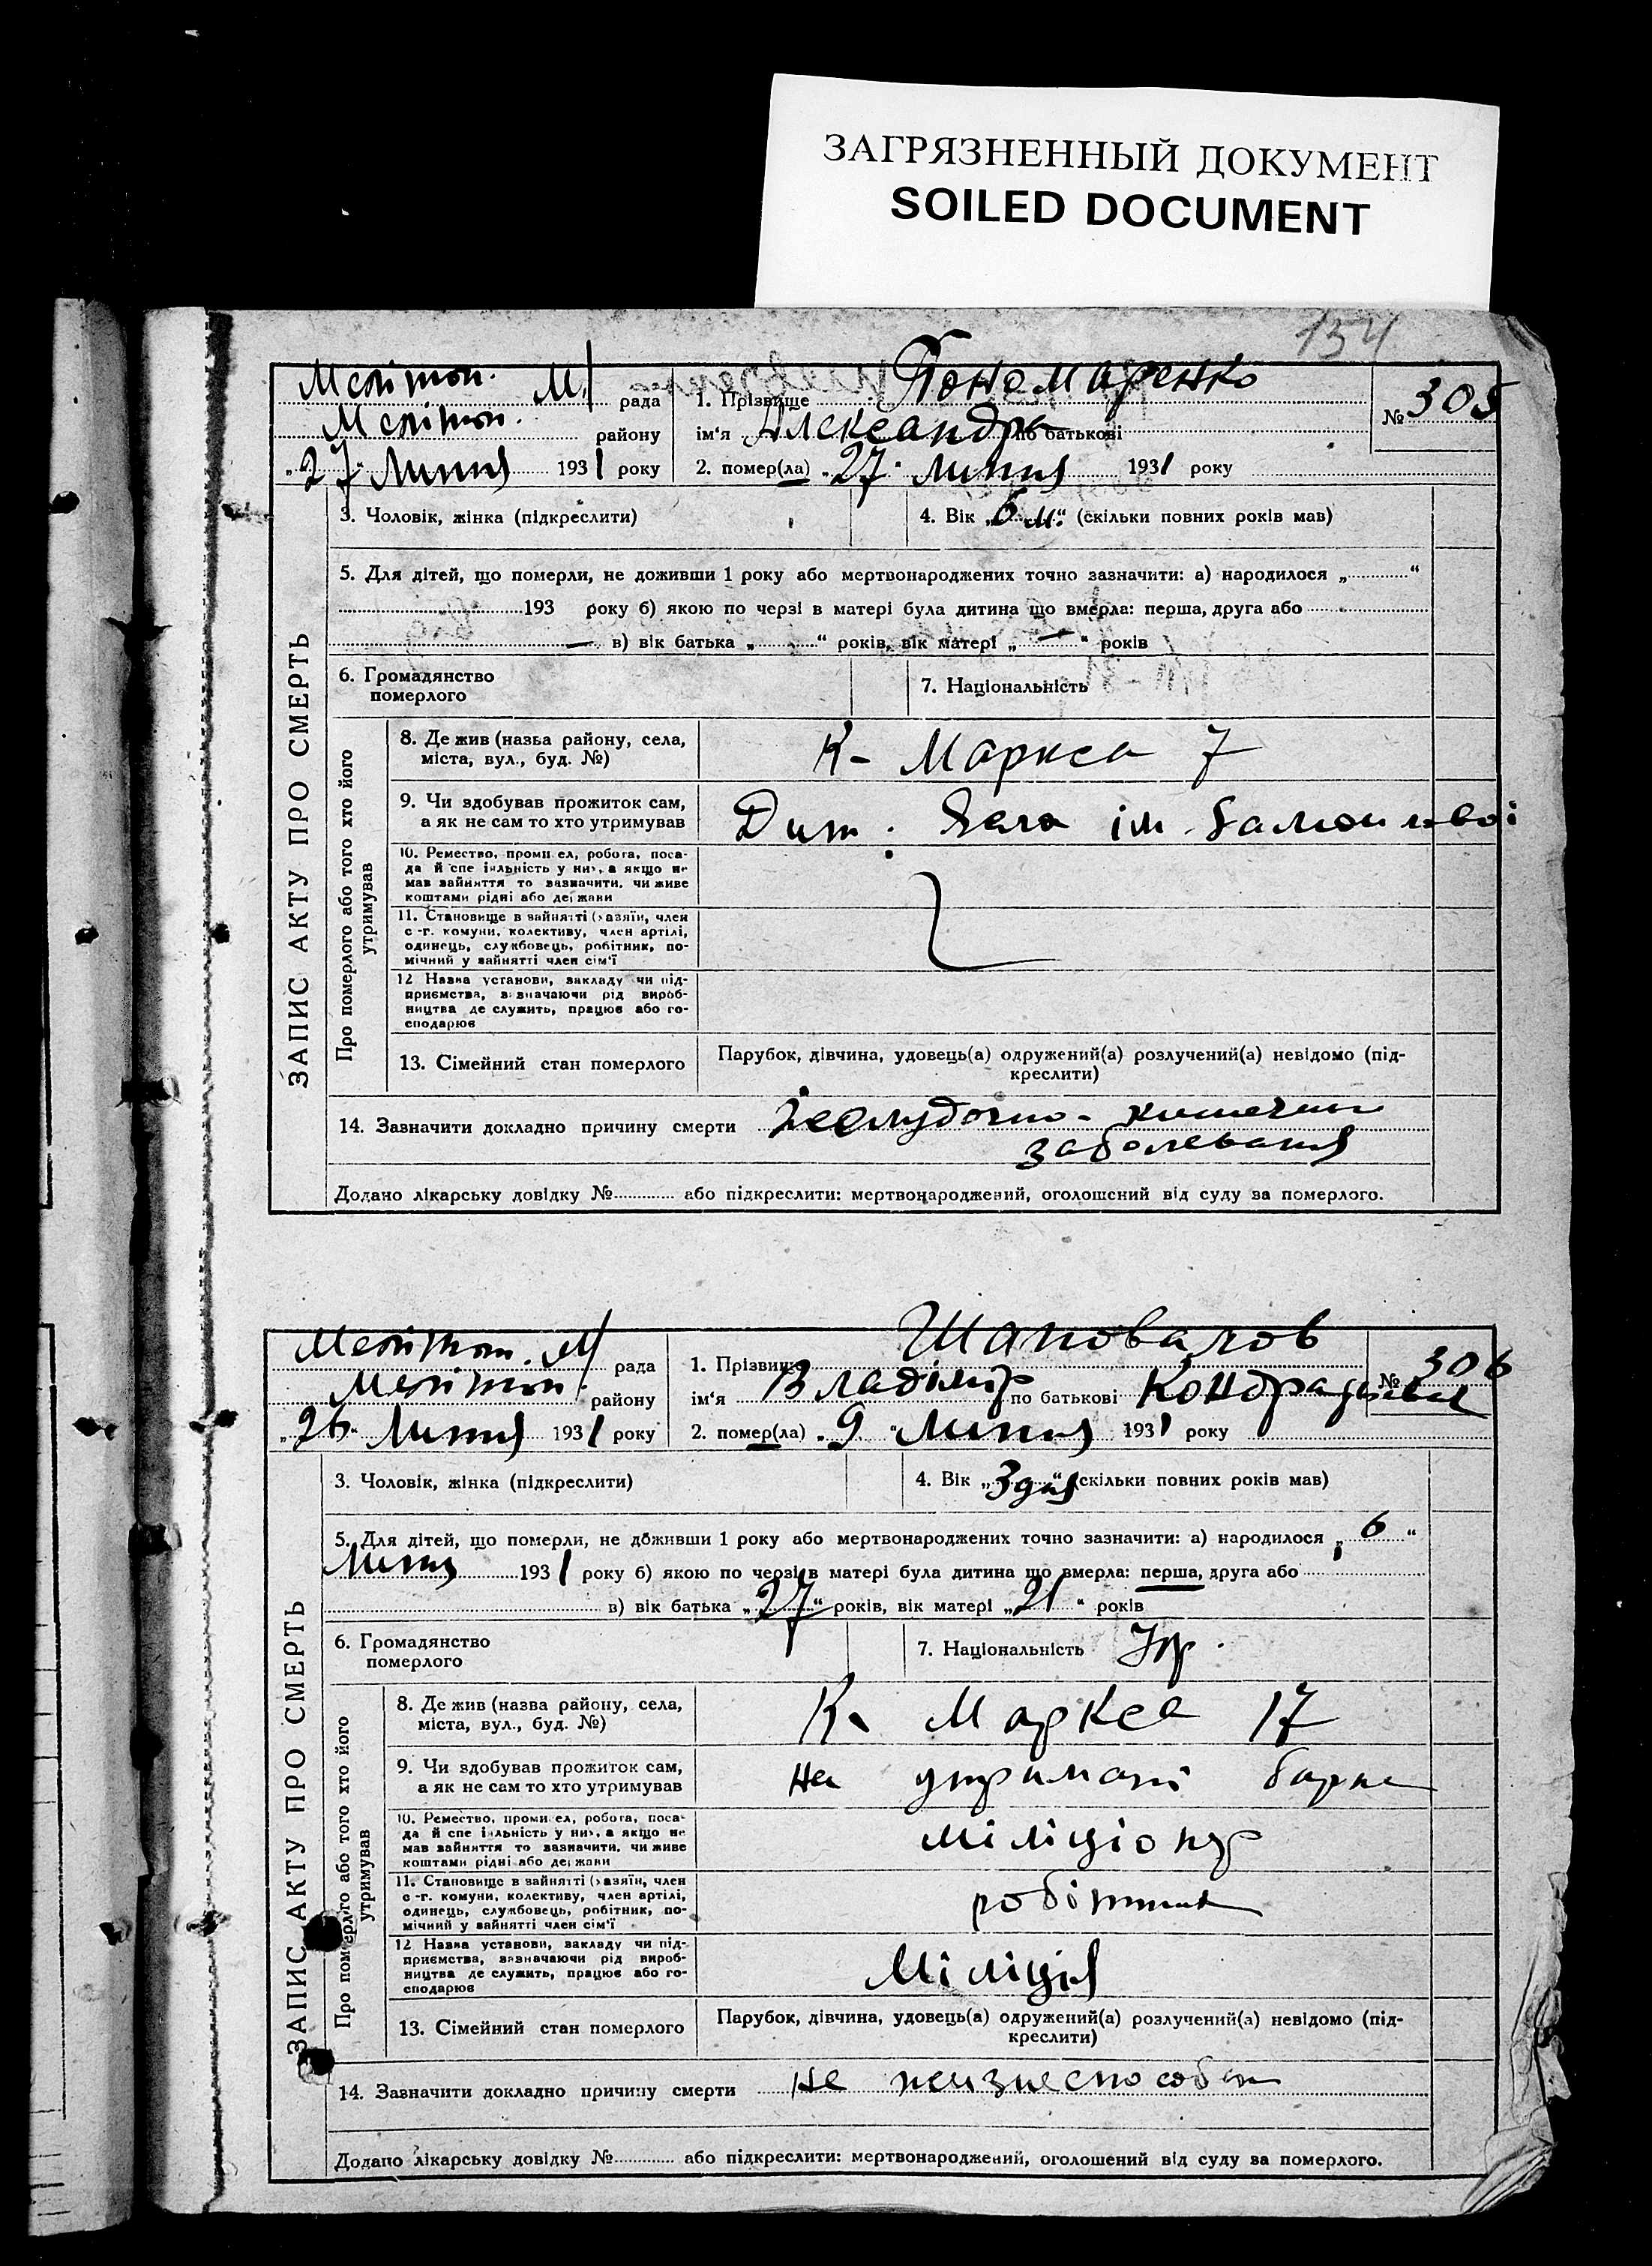 ЗАГРЯЗНЕННЫЙ ДОКУМЕНТ
SOILED DOCUMENT
154
Мелітоп. М/ рада
Мелітоп. району
„27“ Липня 1931 року
1. Прізвище Пономаренко
ім‘я Александра по батькові
2. помер(ла) „27“ липня 1931 року
№ 305
3. Чоловік, жінка (підкреслити)
4. Вік „6 м.“ (скільки повних років мав)
5. Для дітей, що померли, не доживши 1 року або мертвонароджених точно зазначити: а) народилося „ “
193 року б) якою по черзі в матері була дитина що вмерла: перша, друга або
— в) вік батька „ “ років, вік матері „—“ років
6. Громадянство
померлого
7. Національність
ЗАПИС АКТУ ПРО СМЕРТЬ
Про померлого або того хто його
утримував
8. Де жив (назва району, села,
міста, вул., буд. №)
К- Маркса 7
9. Чи здобував прожиток сам,
а як не сам то хто утримував
Дит. ім.
10. Ремество, промисел, робота, поса-
да й спеціяльність у них, а якщо не
мав зайняття то зазначити, чи живе
коштами рідні або держави
11. Становище в зайнятті (хазяїн, член
с.-г. комуни, колективу, член артілі,
одинець, службовець, робітник, по-
мічний у зайнятті член сім‘ї
12 Назва установи, закладу чи під-
приємства, зазначаючи рід вироб-
ництва де служить, працює або го-
сподарює
13. Сімейний стан померлого
Парубок, дівчина, удовець(а) одружений(а) розлучений(а) невідомо (під-
креслити)
14. Зазначити докладно причину смерти Желудочно-кишечн
заболевания
Додано лікарську довідку № або підкреслити: мертвонароджений, оголошений від суду за померлого.
Мелітоп. М/ рада
Мелітоп. району
„26“ Липня 1931 року
1. Прізвище Шаповалов
ім‘я Владімір по батькові Кондратьевич
2. помер(ла) „9“ Липня 1931 року
№ 306
3. Чоловік, жінка (підкреслити)
4. Вік „3 дня“ (скільки повних років мав)
5. Для дітей, що померли, не доживши 1 року або мертвонароджених точно зазначити: а) народилося „6“
Липня 1931 року б) якою по черзі в матері була дитина що вмерла: перша, друга або
в) вік батька „27“ років, вік матері „21“ років
6. Громадянство
померлого
7. Національність Укр.
ЗАПИС АКТУ ПРО СМЕРТЬ
Про померлого або того хто його
утримував
8. Де жив (назва району, села,
міста, вул., буд. №)
К. Маркса 17
9. Чи здобував прожиток сам,
а як не сам то хто утримував
на утримані батька
10. Ремество, промисел, робота, поса-
да й спеціяльність у них, а якщо не
мав зайняття то зазначити, чи живе
коштами рідні або держави
міліціонер
11. Становище в зайнятті (хазяїн, член
с.-г. комуни, колективу, член артілі,
одинець, службовець, робітник, по-
мічний у зайнятті член сім‘ї
робітник
12 Назва установи, закладу чи під-
приємства, зазначаючи рід вироб-
ництва де служить, працює або го-
сподарює
Міліція
13. Сімейний стан померлого
Парубок, дівчина, удовець(а) одружений(а) розлучений(а) невідомо (під-
креслити)
14. Зазначити докладно причину смерти не
Додано лікарську довідку № або підкреслити: мертвонароджений, оголошений від суду за померлого.